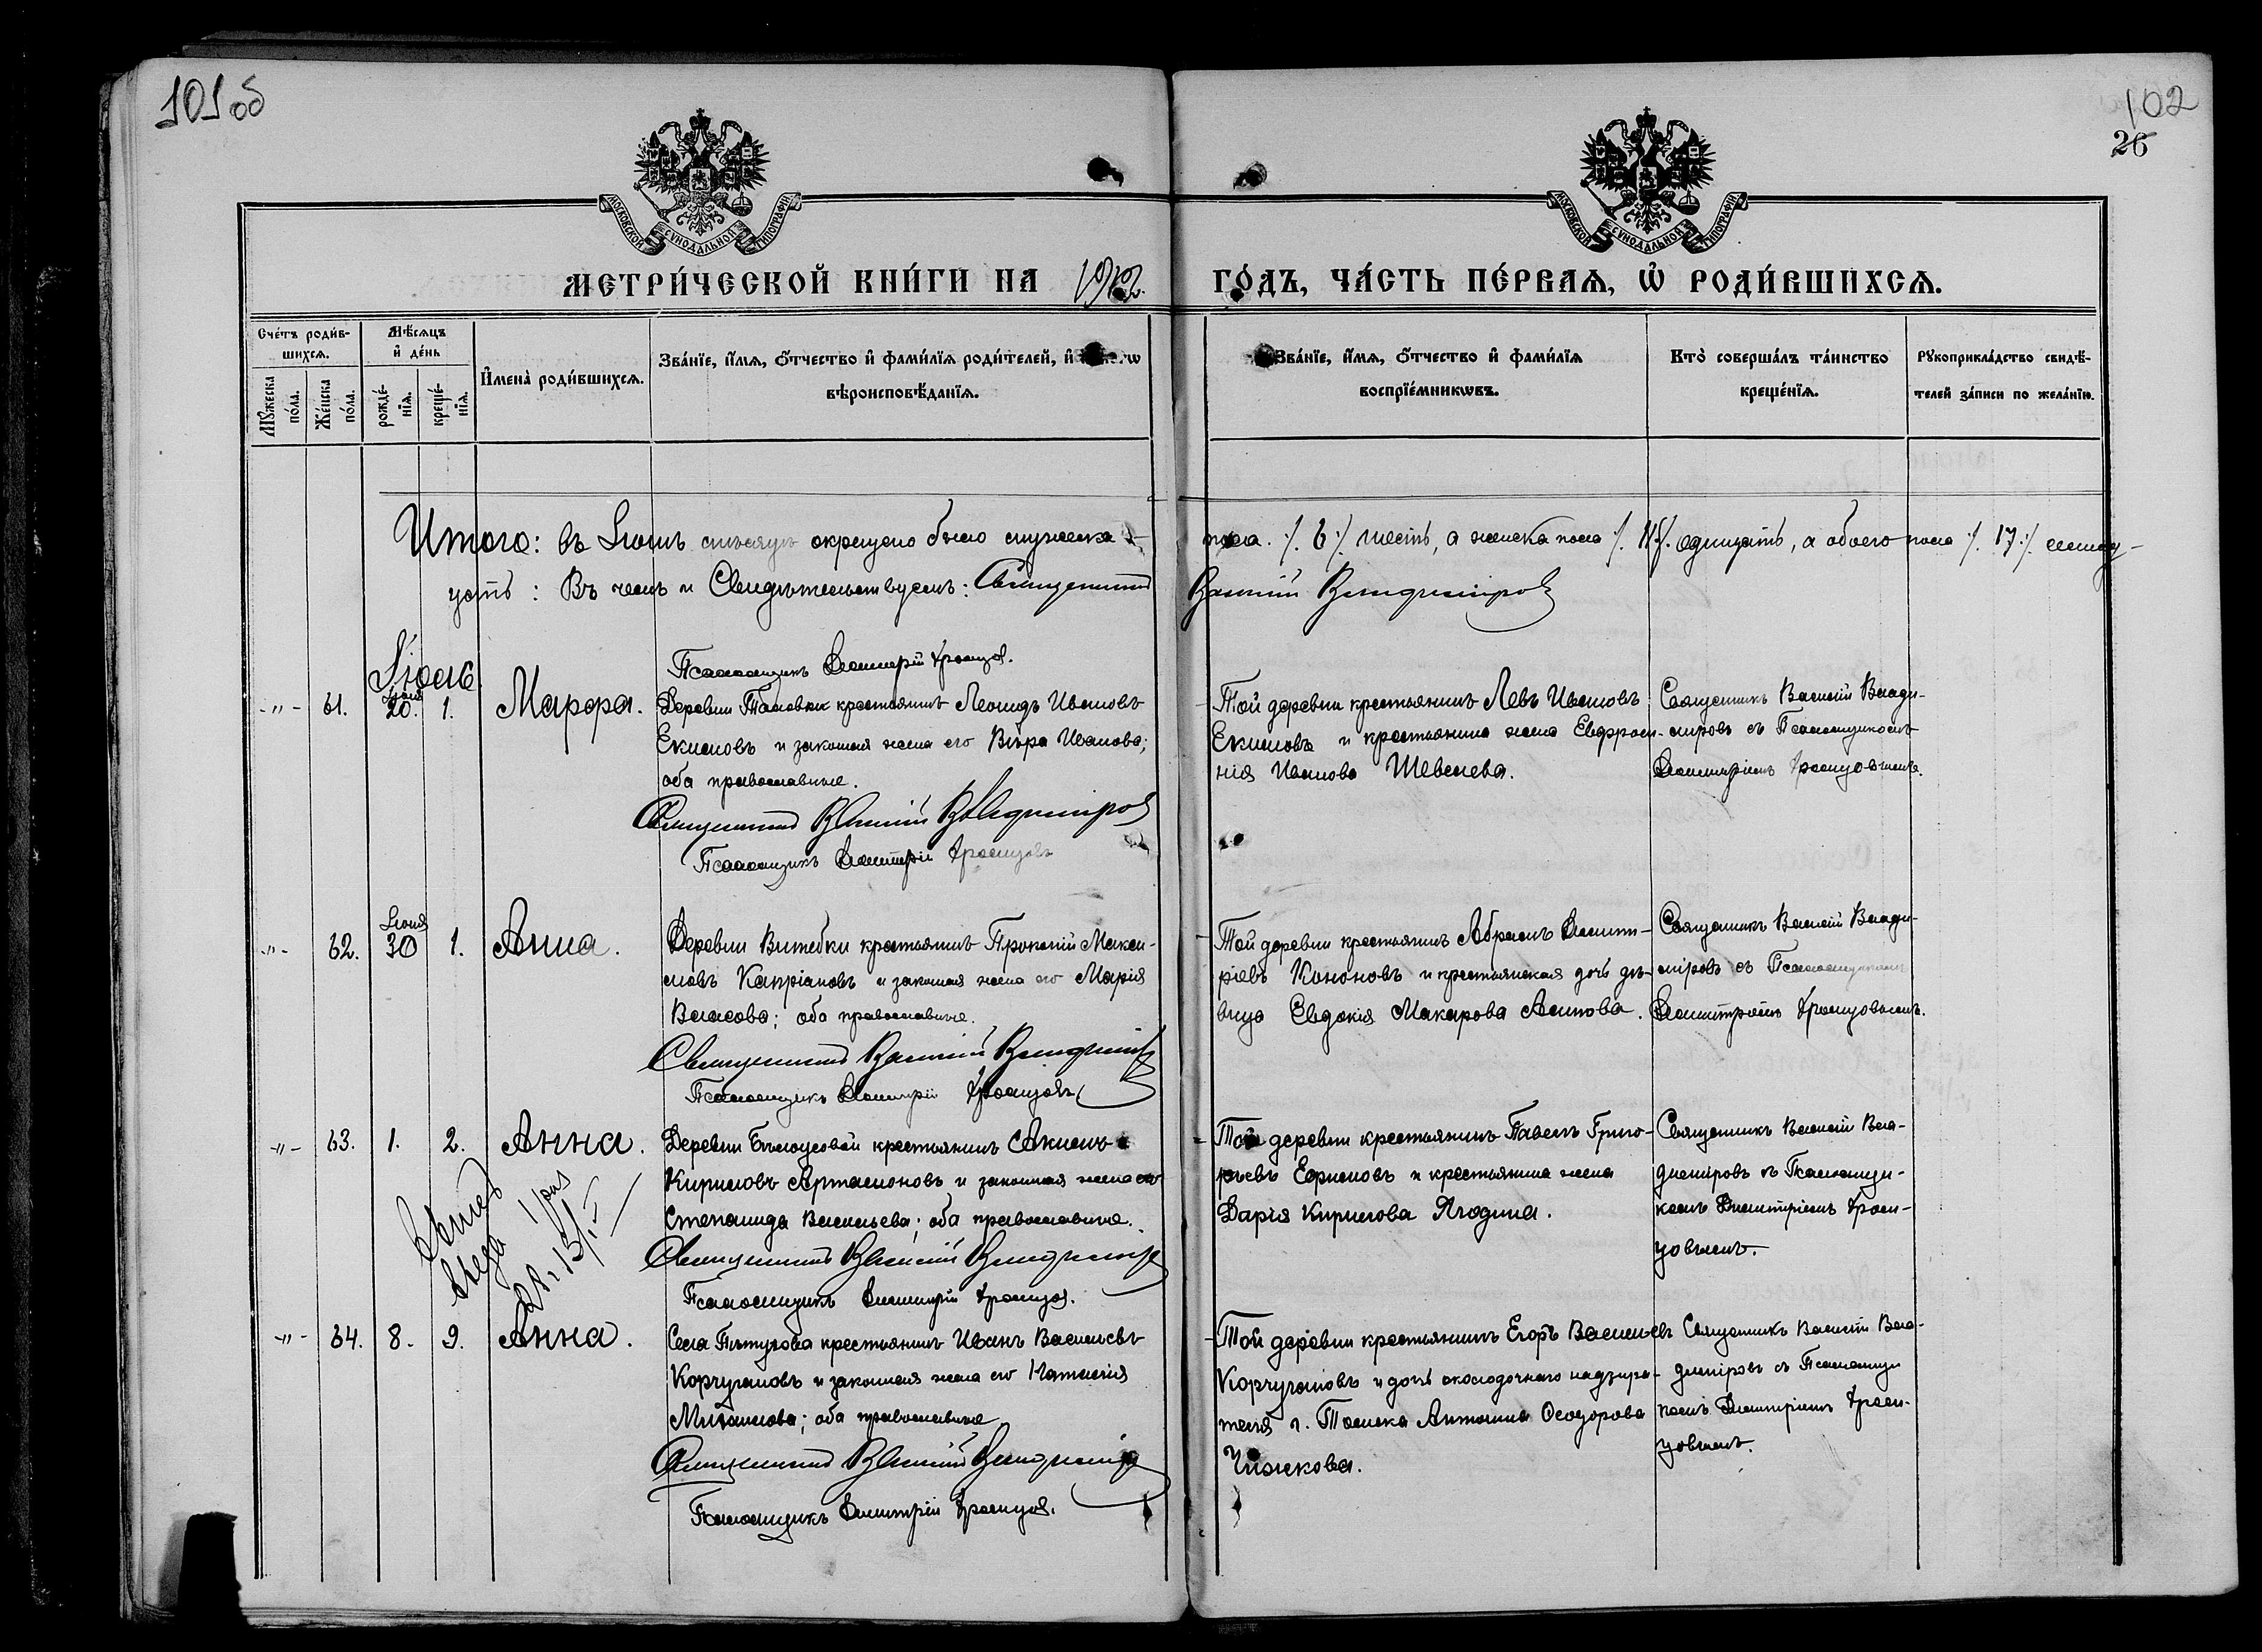 101об
102
26
МОСКОВСКОЙ СУНОДАЛЬНОЙ ТИПОГРАФІИ
МОСКОВСКОЙ СУНОДАЛЬНОЙ ТИПОГРАФІИ
МЕТРИ́ЧЕСКОЙ КНИ́ГИ НА 1912
ГО́ДЪ, ЧА́СТЬ ПЕ́РВАѦ, Ѡ҆ РОДИ́ВШИХСѦ.
Сче́тъ роди́в-
шихсѧ.
Мѣ́сѧцъ
и҆ де́нь
Мꙋ́жеска по́ла.
Же́нска по́ла.
рожде́-
нїѧ.
креще́-
нїѧ.
И҆мена̀ роди́вшихсѧ.
Зва́нїе, и҆́мѧ, ѻ҆́тчество и҆ фами́лїѧ роди́телей, и҆
вѣроисповѣ́данїѧ.
Зва́нїе, и҆́мѧ, ѻ҆́тчество и҆ фами́лїѧ
воспрїе́мникѡвъ.
Кто̀ соверша́лъ та́инство
креще́нїѧ.
Рꙋкоприкла́дство свидѣ́-
телей за́писи по жела́нїю.
Итого: въ Іюнѣ мѣсяцѣ окрещено было мужеска
пола ./. 6 ./. шесть, а женска пола ./. 11 ./. одинадть, а обоего пола ./. 17 ./. семнад-
цать: Въ чемъ и Свидѣтельствуемъ: Священникъ
Василій Владиміровъ
Псаломщикъ Димитрій
Іюль
-"- 61. Іюня 20. 1. Марфа.
Деревни крестьянинъ Леонидъ Ивановъ
Екимовъ и законная жена его Вѣра Иванова;
оба православные.
Священникъ Василій Владиміровъ
Псаломщикъ Димитрій
Той деревни крестьянинъ Левъ Ивановъ
Екимовъ и крестьянина жена Евфроси-
нія Иванова Шевелева.
Священникъ Василій Влади-
міровъ съ Псаломщикомъ
Димитріемъ
-"- 62. Іюня 30 1. Анна.
Деревни Витебки крестьянинъ Прокопій Макси-
мовъ Капріановъ и законная жена его Марія
Власова; оба православные.
Священникъ Василій Владиміровъ
Псаломщикъ Димитрій
Той деревни крестьянинъ Абрамъ Димит-
ріевъ Кононовъ и крестьянская дочь дѣ-
вица Евдокія Макарова Асипова.
Священникъ Василій Влади-
міровъ съ Псаломщикомъ
Димитріемъ
-"- 63. 1. 2. Анна.
Деревни Бѣлоусовой крестьянинъ Акимъ
Кириловъ Артамоновъ и законная жена его
Степанида Васильева; оба православные.
Священникъ Василій Владиміровъ
Псаломщикъ Димитрій
Той деревни крестьянинъ Павелъ Григо-
рьевъ Ефимовъ и крестьянина жена
Дарія Кирилова Ягодина.
Священникъ Василій Вла-
диміровъ съ Псаломщи-
комъ Димитріемъ
цовымъ.
-"- 64. 8. 9. Анна.
Села Пѣтухова крестьянинъ Иванъ Васильевъ
Корчугановъ и законная жена его Наталія
Михайлова; оба православные
Священникъ Василій Владиміровъ
Псаломщикъ Димитрій
Той деревни крестьянинъ Егоръ Васильевъ
Корчугановъ и дочь околодочнаго надзира-
теля г. Томска Антонина Ѳеодорова
Чижкова.
Священникъ Василій Вла-
диміровъ съ Псаломщи
комъ Димитріемъ
цовымъ.